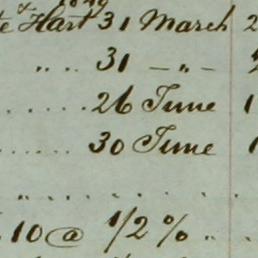 1849
te Hart 31 March 2
" " 31 — " —
26 June 1
30 June 1
10 @ 1/2 %